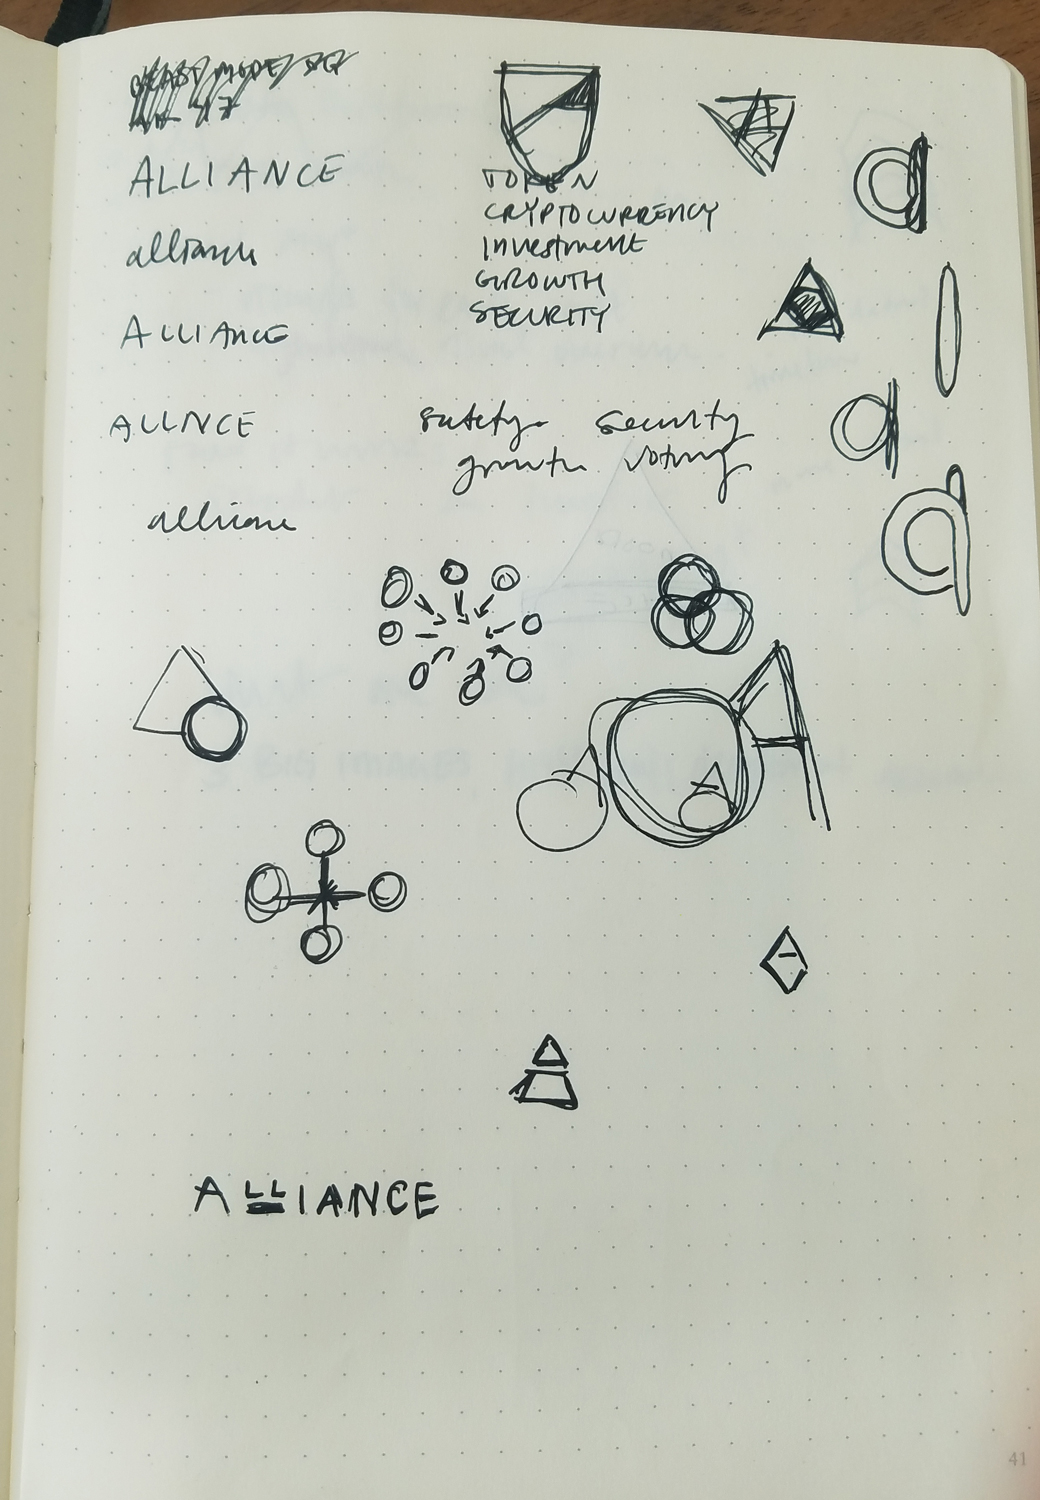 ALLIANCE
alliance
ALLIANCE
ALLINCE
alliance
TOKEN
CRYPTOCURRENCY
Investment
GROWTH
SECURITY
safety security
growth voting
a
a
a
A
ALLIANCE
41